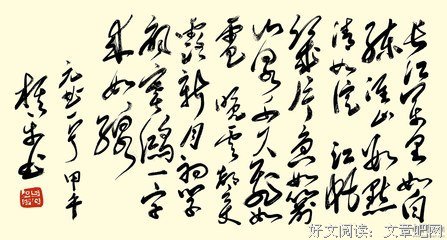 长江万里如白
练淮山数点
清如淀 江帆
几片急如箭
山泉千尺飞如
电 晚云都变
露新月初学
扇塞鸿一字
来如线
元曲一首 甲午
书
好文阅读：文章吧网